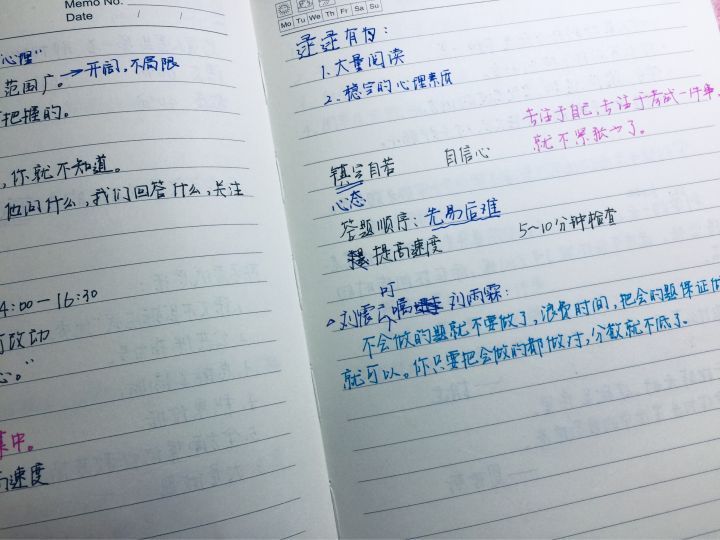 Memo No.
Date / /
心理”
范围广。→开阔,不局限
把握的。
,你就不知道。
他问什么,我们回答什么,关注
4:00—16:30
改动
心。”
集中。
速度
Mo Tu We Th Fr Sa Su
有为:
1.大量阅读
2.稳定的心理素质
专注于自己,专注于考试一件事,
就不紧张了。
镇定自若 自信心
心态
答题顺序:先易后难
5~10分钟检查
提高速度
叮
嘱 刘雨霖:
不会做的题就不要做了,浪费时间,把会的题保证做
就可以。你只要把会做的都做对,分数就不低了。